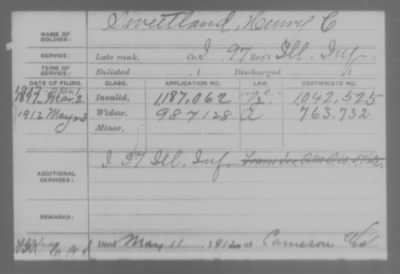 NAME OF SOLDIER: Sweetland, Henry C
SERVICE: Late rank, Co. I 97 Reg't Ill. Inf.
TERM OF SERVICE: Enlisted , 1 Discharged
DATE OF FILING. CLASS. APPLICATION NO. LAW. CERTIFICATE NO.
1897 Mar. 2 Invalid, 1,187,062 1,042,525
1912 May 23 Widow, 987128 763.732
Minor,
ADDITIONAL SERVICES: I 97 Ill. Inf.
REMARKS:
Died May 11 1912 at Cameron